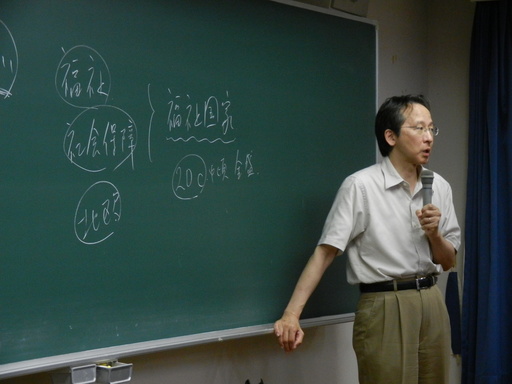 福祉
社会保障
福祉国家
20c中頃全盛
北欧